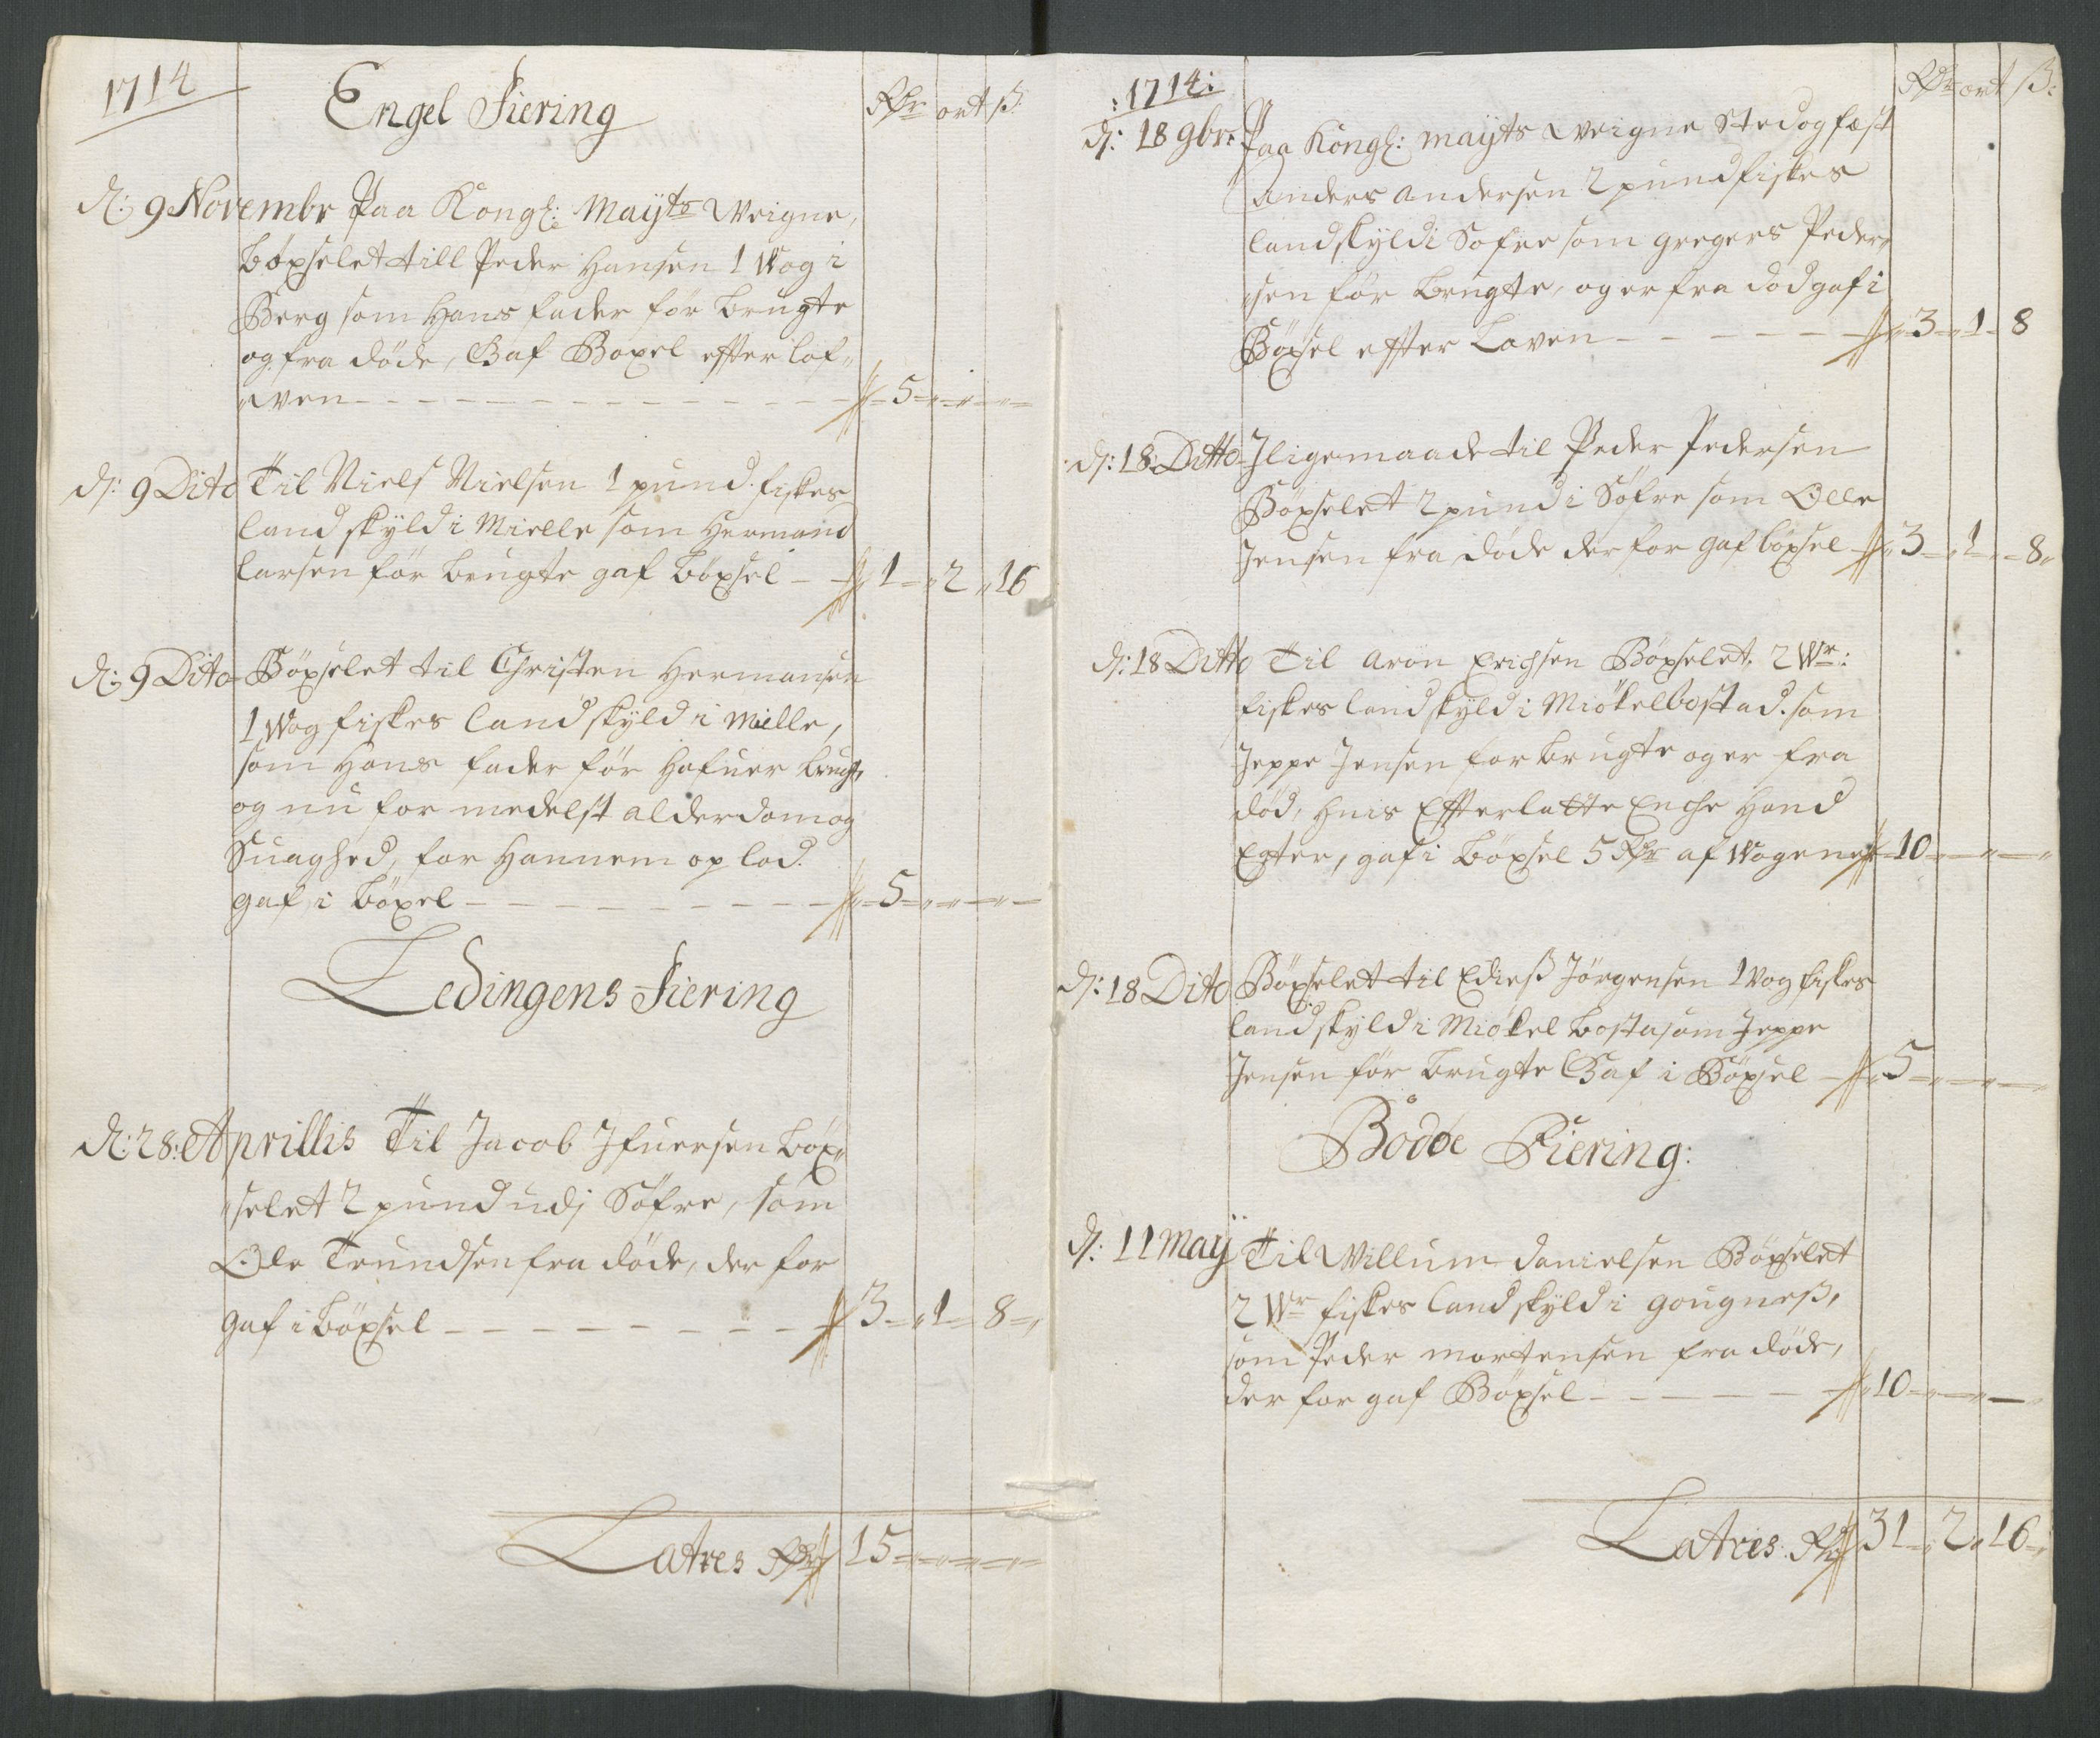 1714
Engel Fiering
Rdr ort ß.
d: 9 Novembr Paa Kongl: Maÿts Weigne,
böxselet till Peder Hansen 1 Wog i
Berg som Hans fader för brugte
og fra döde, Gaf Boxel efter lof„
„wen — 5
d: 9 Dito Til Niels Nielsen 1 pund fiskes
landskÿld i Mielle som Hermand
larsen för brugte gaf böxsel — 1 „ 2 „ 16
d: 9 Dito Böxselet til Christen Hermansen
1 Wog fiskes landskÿld i Mille,
som Hans fader för Hafuer brugt,
og nu formedelst alderdom og
Suaghed, for Hannem oplod.
gaf i böxel — 5
Ledingens Fiering
d: 28: Aprillis Til Jacob Ifuersen böx„
„selet 2 pund udj Söfre, som
Ole Trundsen fra döde, der for
gaf i böxsel — 3 „ 1 „ 8
Latres Rdr 15
:1714:
Rdr ort ß:
d: 18 9br: Paa Kongl: maÿts Weigne Sted og fæst
Anders Andersen 2 pund fiskes
landskyld i Sofre som gregers Peder„
„sen för brugte, og er fra död gaf i
Böxsel effter Laven — 3 „ 1 „ 8
d: 18 Ditto Iligemaade til Peder Pedersen
Böxselet 2 pund i Söfre som Olle
Jensen fra döde der for gaf böxsel 3 „ 1 „ 8
d: 18 Ditto Til Aron Erichsen Böxselet 2 Wr:
fiskes landskÿld i Miökelbostad som
Jeppe Jensen for brugte og er fra
död, huis Efterlatte Enche Hand
Egter, gaf i böxsel 5 Rdr af Wogen 10
d: 18 Dito Böxselet til Edieß Jörgensen 1 Vog fiskes
landskyld i Miökelbosta som Jeppe
Jensen för brugte Gaf i Böxsel — 5
Bodöe Fiering:
d: 11 Maÿ Til Willum Danielsen Böxselet
2 Wr fiskes landskÿld i gougneß,
som Peder Mortensen fra döde,
der for gaf Böxsel — 10
Latres: Rdr 31 „ 2 „ 16